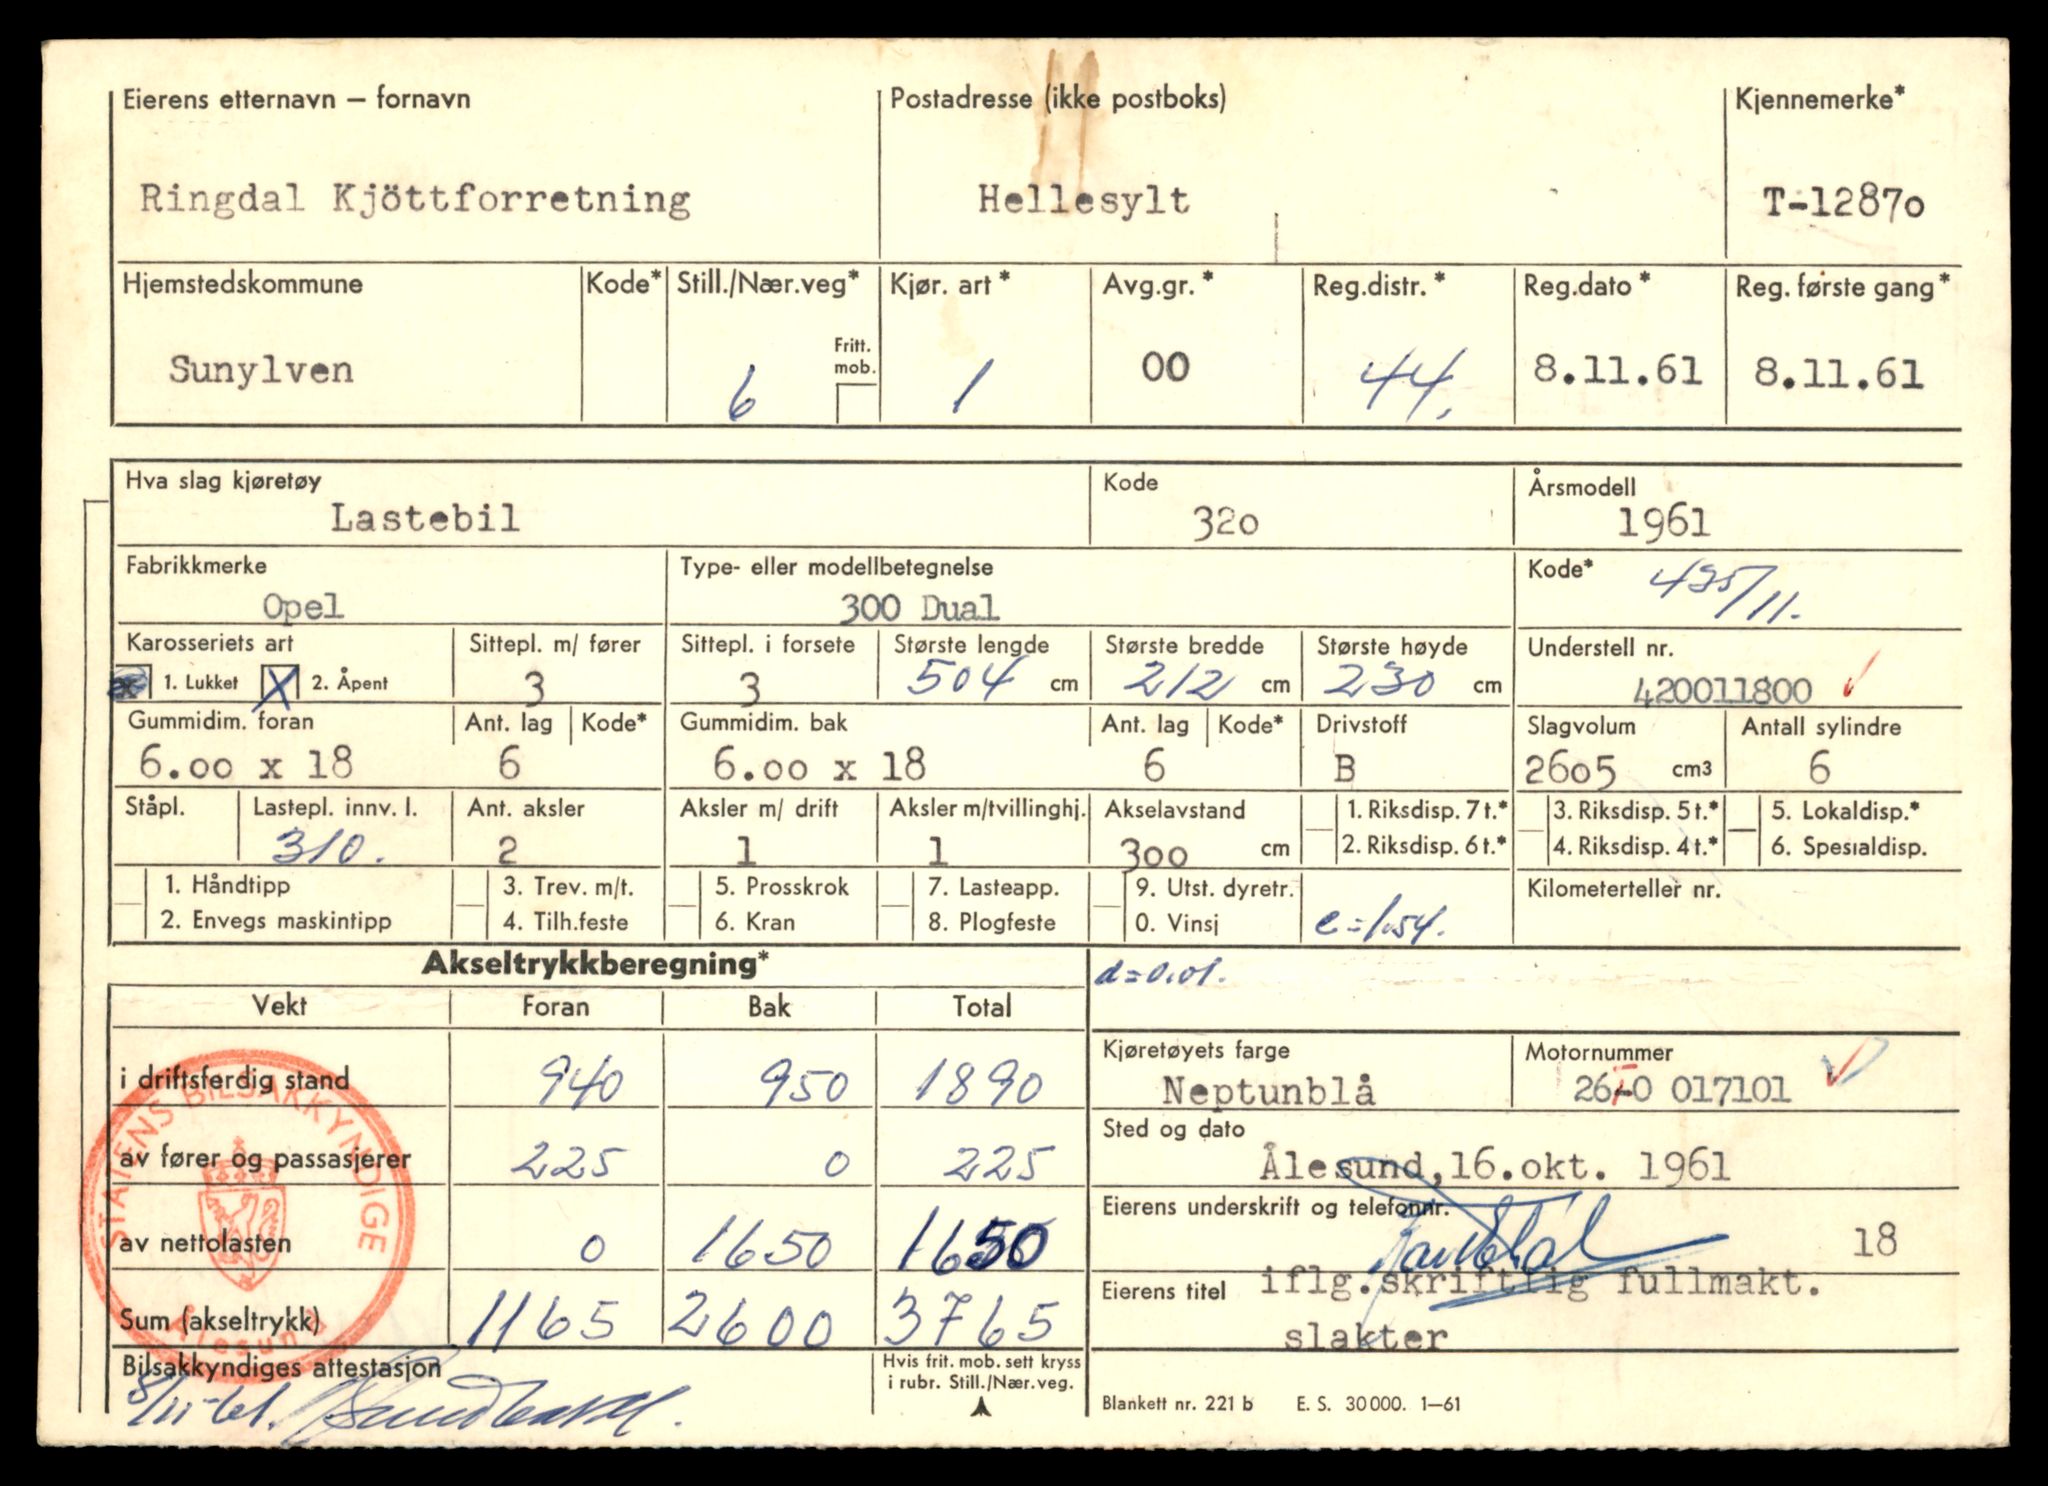 Eierens etternavn – fornavn Postadresse (ikke postboks) Kjennemerke*
Ringdal Kjöttforretning Hellesylt T-12870
Hjemstedskommune Kode* Still./Nær.veg* Kjør. art* Avg.gr.* Reg.distr.* Reg.dato* Reg. første gang*
Fritt. mob.
Sunylven 6 1 00 44. 8.11.61 8.11.61
Hva slag kjøretøy Kode Årsmodell
Lastebil 320 1961
Fabrikkmerke Type- eller modellbetegnelse Kode*
Opel 300 Dual 435/11.
Karosseriets art Sittepl. m/ fører Sittepl. i forsete Største lengde Største bredde Største høyde Understell nr.
x 1. Lukket X 2. Åpent 3 3 504 cm 212 cm 230 cm 420011800
Gummidim. foran Ant. lag Kode* Gummidim. bak Ant. lag Kode* Drivstoff Slagvolum Antall sylindre
6.00 x 18 6 6.00 x 18 6 B 2605 cm3 6
Ståpl. Lastepl. innv. l. Ant. aksler Aksler m/ drift Aksler m/tvillinghj. Akselavstand 1. Riksdisp. 7 t.* 3. Riksdisp. 5 t.* 5. Lokaldisp.*
310. 2 1 1 300 cm 2. Riksdisp. 6 t.* 4. Riksdisp. 4 t.* 6. Spesialdisp.
1. Håndtipp 3. Trev. m/t. 5. Prosskrok 7. Lasteapp. 9. Utst. dyretr. Kilometerteller nr.
2. Envegs maskintipp 4. Tilh.feste 6. Kran 8. Plogfeste 0. Vinsj e=1.54.
Akseltrykkberegning* d=0.01.
Vekt Foran Bak Total
i driftsferdig stand 940 950 1890
Kjøretøyets farge Motornummer
Neptunblå 26-0 017101
av fører og passasjerer 225 0 225
Sted og dato
Ålesund,16.okt. 1961
av nettolasten 0 1650 1650
Eierens underskrift og telefonnr. 18
Sum (akseltrykk) 1165 2600 3765
Eierens titel iflg.skriftlig fullmakt.
slakter
Bilsakkyndiges attestasjon Hvis frit. mob. sett kryss
i rubr. Still./Nær.veg.
8/11-61.
Blankett nr. 221 b E. S. 30 000. 1–61
STATENS BILSAKKYNDIGE
Ålesund